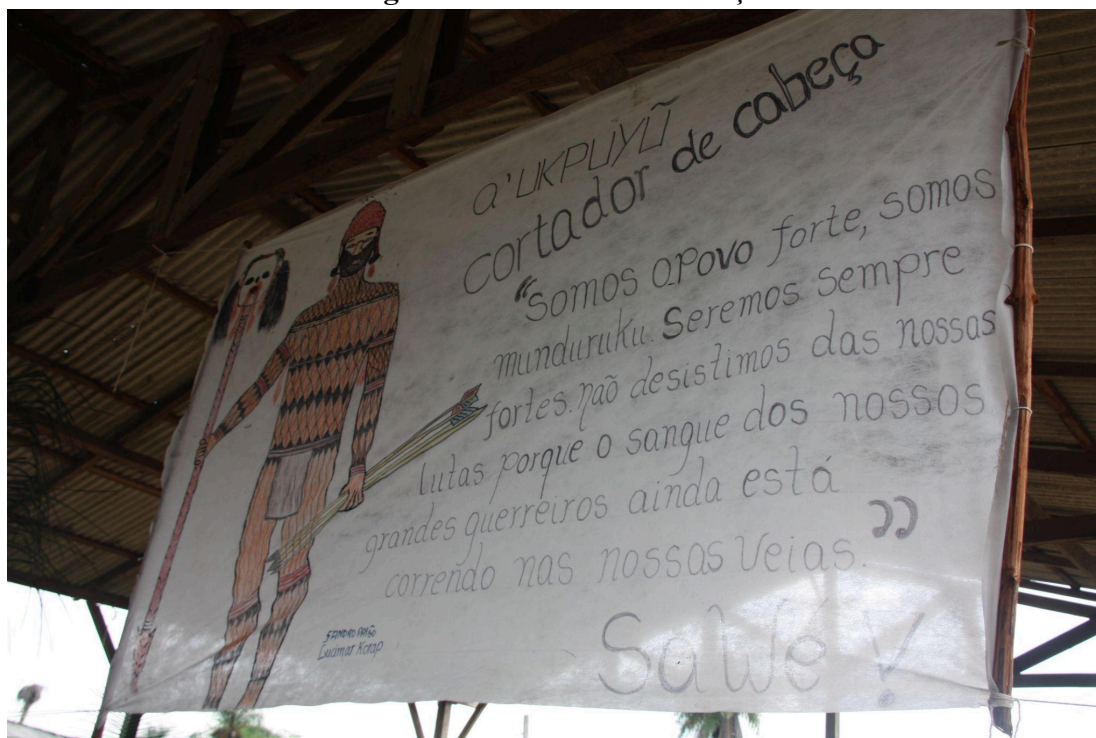 a'UKPUYŨ
cortador de cabeça
"Somos o povo forte, somos
munduruku. Seremos sempre
fortes. não desistimos das nossas
lutas porque o sangue dos nossos
grandes guerreiros ainda está
correndo nas nossas veias."
Lucimar Korap
Sawé!